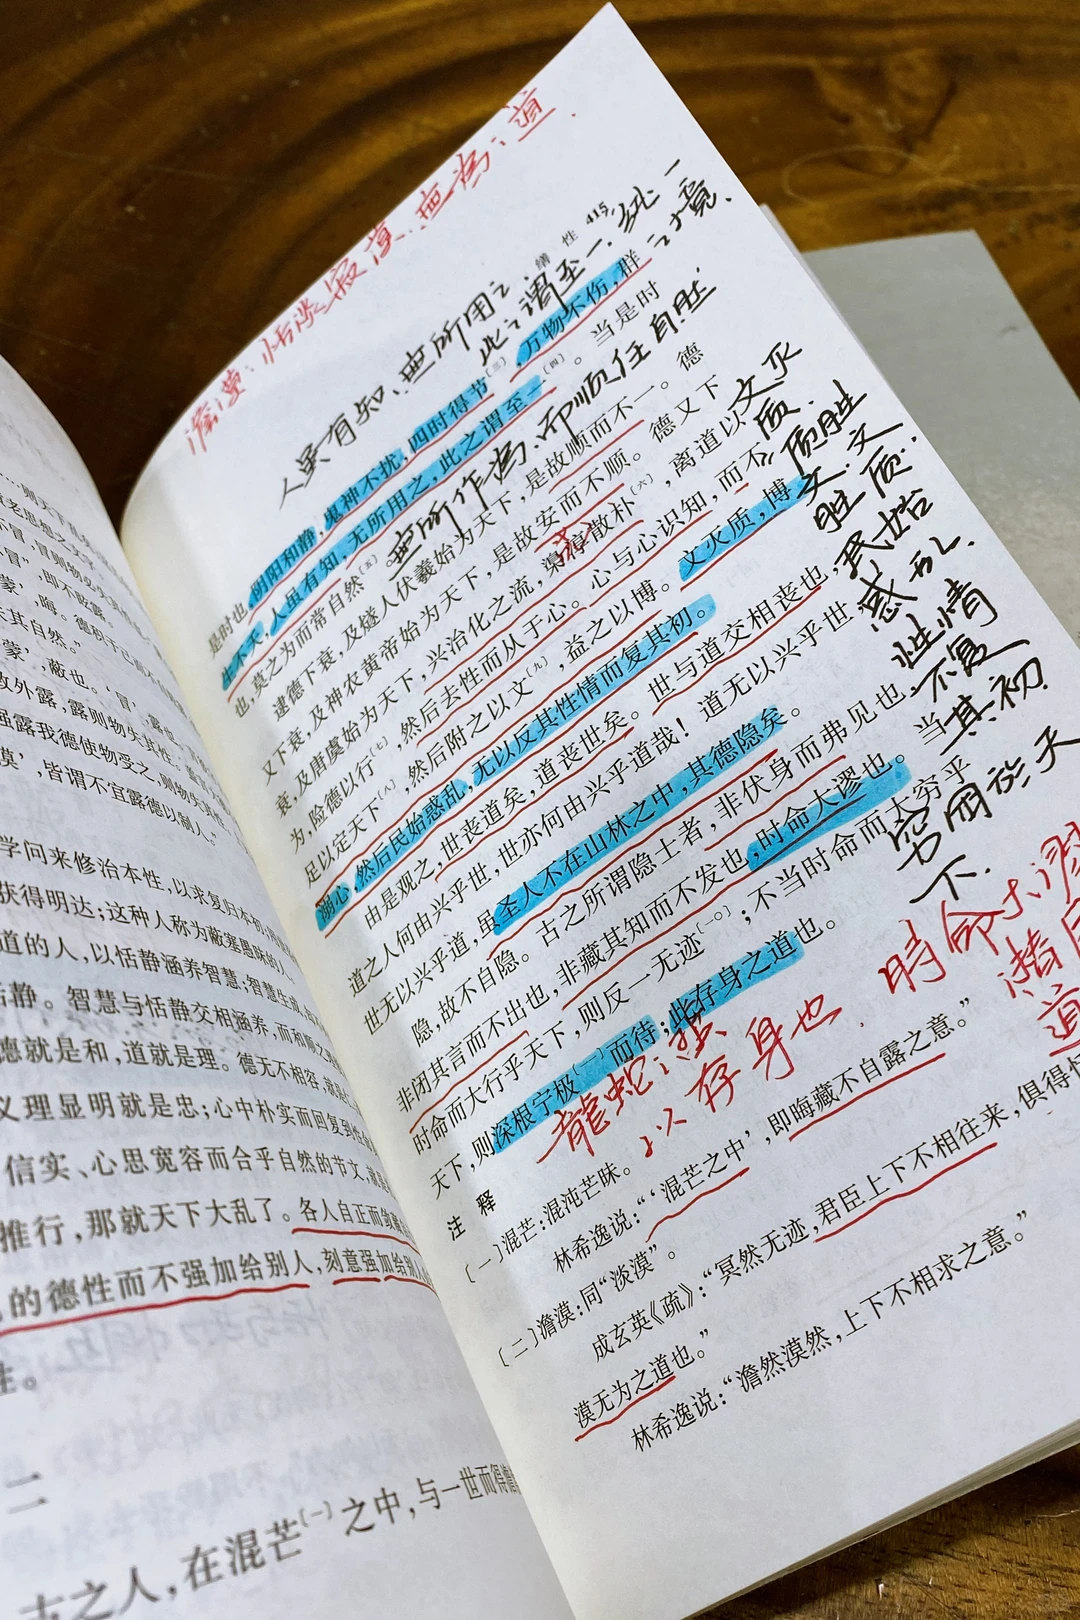 ……则天下
冒'，冒则物必失
'冒'，即不眩露。
蒙'，晦。德积于己
失其自然。"
蒙'，蔽也。'冒'，露也。
敛外露，露则物失其性；
强露我德使物受之，则物失
谟'，皆谓不宜露德以制人。"
学问来修治本性，以求复归本初；
获得明达；这种人称为蔽塞愚昧的人。
道的人，以恬静涵养智慧；智慧生成，
恬静。智慧与恬静交相涵养，而和顺之
德就是和，道就是理。德无不相容，就是
义理显明就是忠；心中朴实而回复到性
信实、心思宽容而合乎自然的节文，就是
推行，那就天下大乱了。各人自正而敛藏
的德性而不强加给别人，刻意强加给别人
性。
二
古之人，在混芒〔一〕之中，与一世而得澹
澹漠：恬淡寂寞.無為之道.
缮 性 415
人虽有知、無所用之
此之謂至一.纯一
之境.
是时也，阴阳和静，鬼神不扰，四时得节〔三〕，万物不伤，群
生不夭，人虽有知，无所用之，此之谓至一〔四〕。当是时
也，莫之为而常自然〔五〕。
無所作為、而順任自然
逮德下衰，及燧人伏羲始为天下，是故顺而不一。德
又下衰，及神农黄帝始为天下，是故安而不顺。德又下
衰，及唐虞始为天下，兴治化之流，枭淳散朴〔六〕，离道以
为，险德以行〔七〕，然后去性而从于心。心与心识知，而不
足以定天下〔八〕，然后附之以文〔九〕，益之以博。文灭质，博
溺心，然后民始惑乱，无以反其性情而复其初。
由是观之，世丧道矣，道丧世矣。世与道交相丧也，
道之人何由兴乎世，世亦何由兴乎道哉！道无以兴乎世，
世无以兴乎道，虽圣人不在山林之中，其德隐矣。
隐，故不自隐。古之所谓隐士者，非伏身而弗见也，
非闭其言而不出也，非藏其知而不发也，时命大谬也。当
时命而大行乎天下，则反一无迹〔一〇〕；不当时命而大穷乎
天下，则深根宁极〔一一〕而待；此存身之道也。
文灭
质.
质胜
文.文
胜质.
民始
惑乱.
性情
不复
其初.
穷困於天
下.
時命大谬
道
龍蛇之蛰
以存身也.
注 释
〔一〕混芒：混沌芒昧。
林希逸说："'混芒之中'，即晦藏不自露之意。"
〔二〕澹漠：同"淡漠"。
成玄英《疏》："冥然无迹，君臣上下不相往来，俱得恬
漠无为之道也。"
林希逸说："澹然漠然，上下不相求之意。"